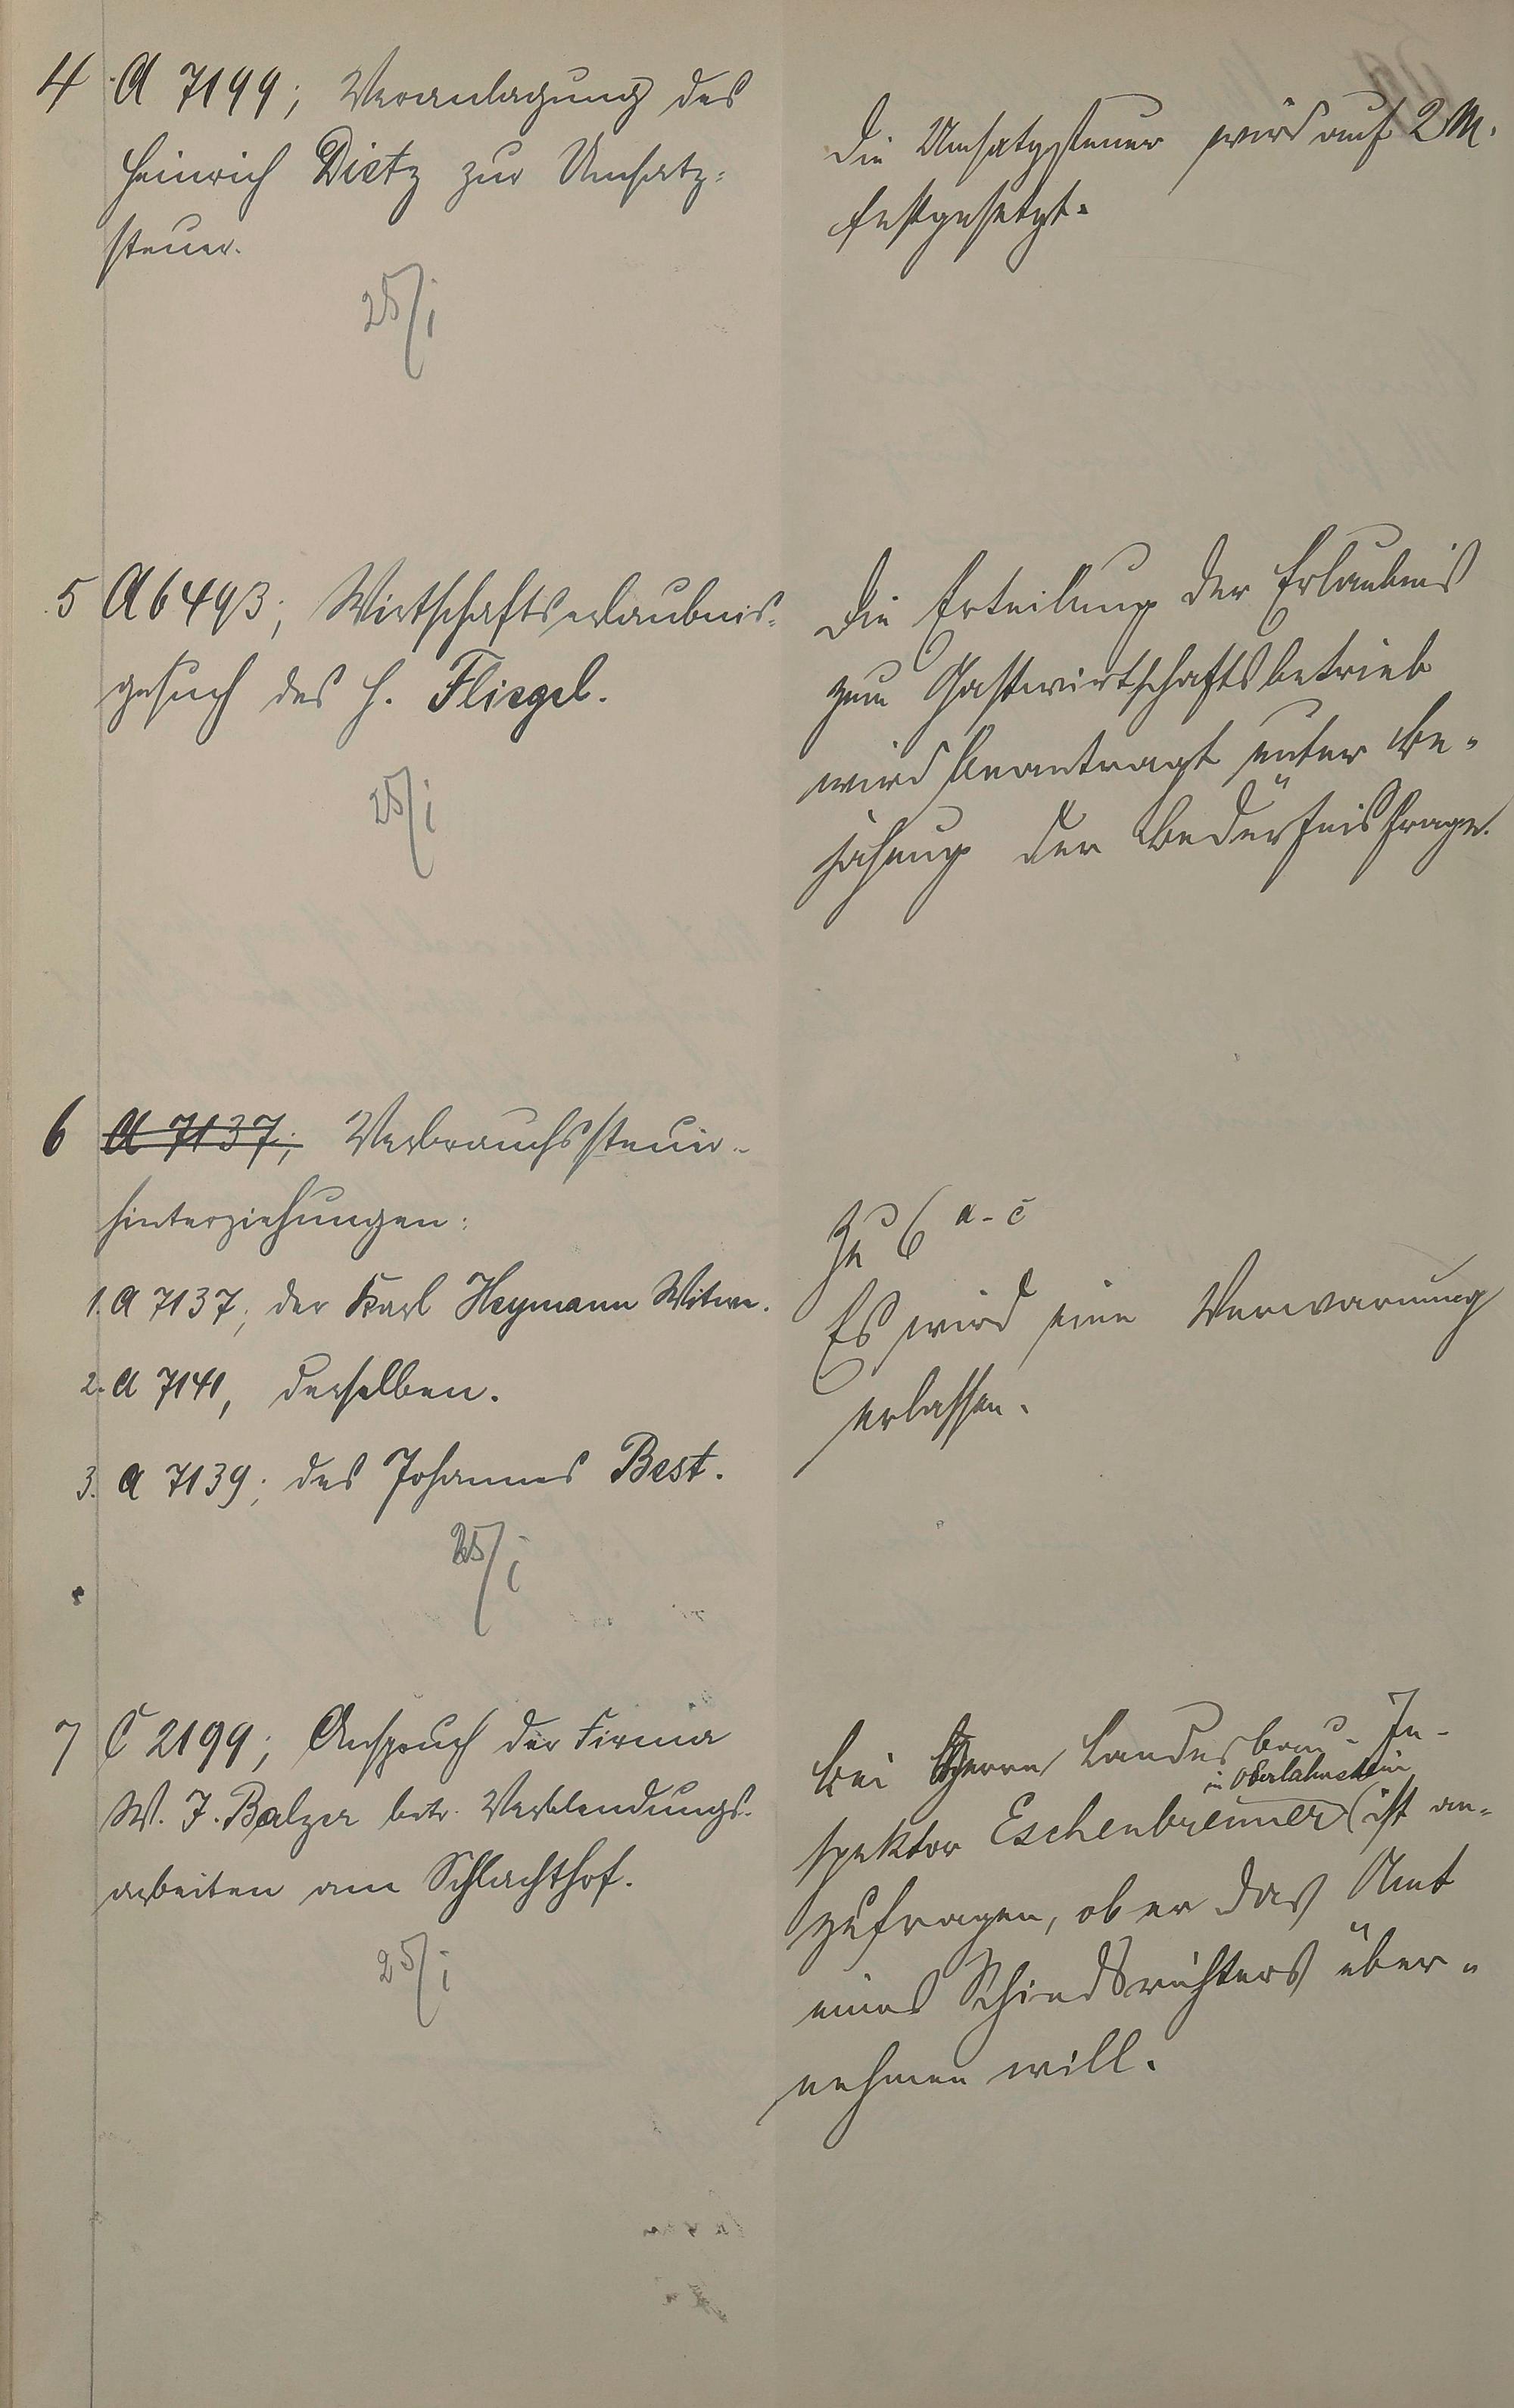 4 A 7199; Veranlagung des
Heinrich Dietz zur Umsatz=
steuer.
25/I
Die Umsatzsteuer wird auf 2 M.
festgesetzt.
5 A 6493; Wirtschaftserlaubnis=
gesuch des H. Fliegel.
25/I
Die Erteilung der Erlaubnis
zum Gastwirtschaftsbetrieb
wird beantragt unter Be-
jahung der Bedürfnisfrage.
6 A 7137; Verbrauchssteuer-
hinterziehungen:
1. A 7137; der Karl Heymann Witwe.
2. A 7141, derselben.
3. A 7139; des Johannes Best.
25/I
Zu 6 a-c
Es wird eine Verwarnung
erlassen.
7 C 2199; Anspruch der Firma
W. J. Balzer betr. Verblendungs-
arbeiten am Schlachthof.
25/I
Bei Herrn Landesbau-In-
in Oberlahnstein
spektor Eschenbrenner ist an-
zufragen, ob er das Amt
eines Schiedsrichters über-
nehmen will.